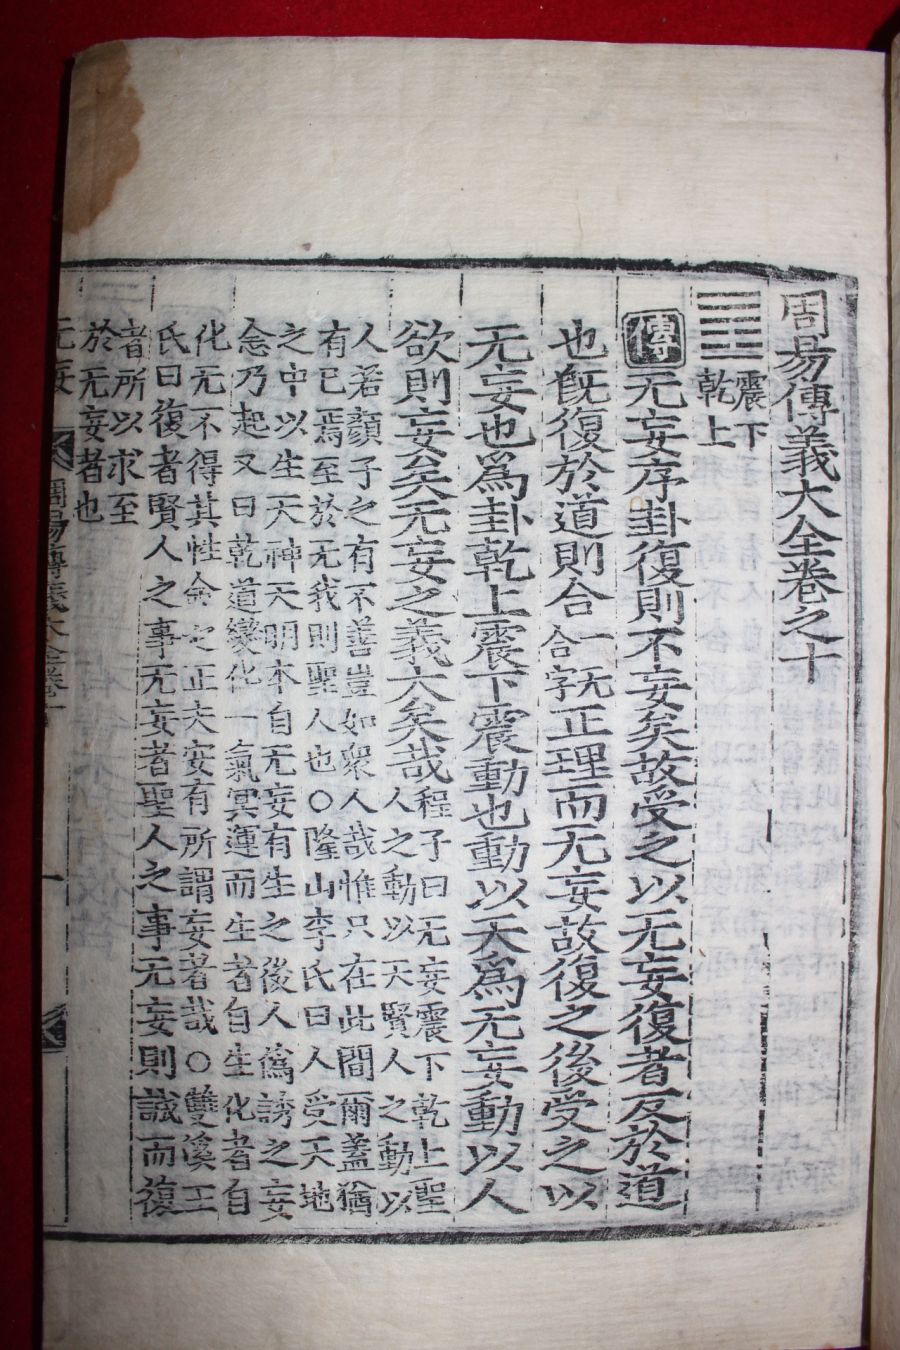 周易傳義大全卷之十
䷘
震下
乾上
傳 无妄序卦復則不妄矣故受之以无妄復者反於道
也旣復於道則合一旡合字正理而无妄故復之後受之以
无妄也爲卦乾上震下震動也動以天爲无妄動以人
欲則妄矣无妄之義大矣哉
程子曰无妄震下乾上聖
人之動以天賢人之動以
人若顔子之有不善豈如衆人哉惟只在此間爾蓋猶
有已焉至於无我則聖人也○隆山李氏曰人受天地
之中以生天神天明本自无妄有生之後人僞誘之妄
念乃起又曰乾道變化一氣冥運而生者自生化者自
化无不得其性命之正夫安有所謂妄者哉○雙溪王
氏曰復者賢人之事无妄者聖人之事无妄則誠而復
者所以求至
於无妄者也
无妄
周易傳義大全卷十
一